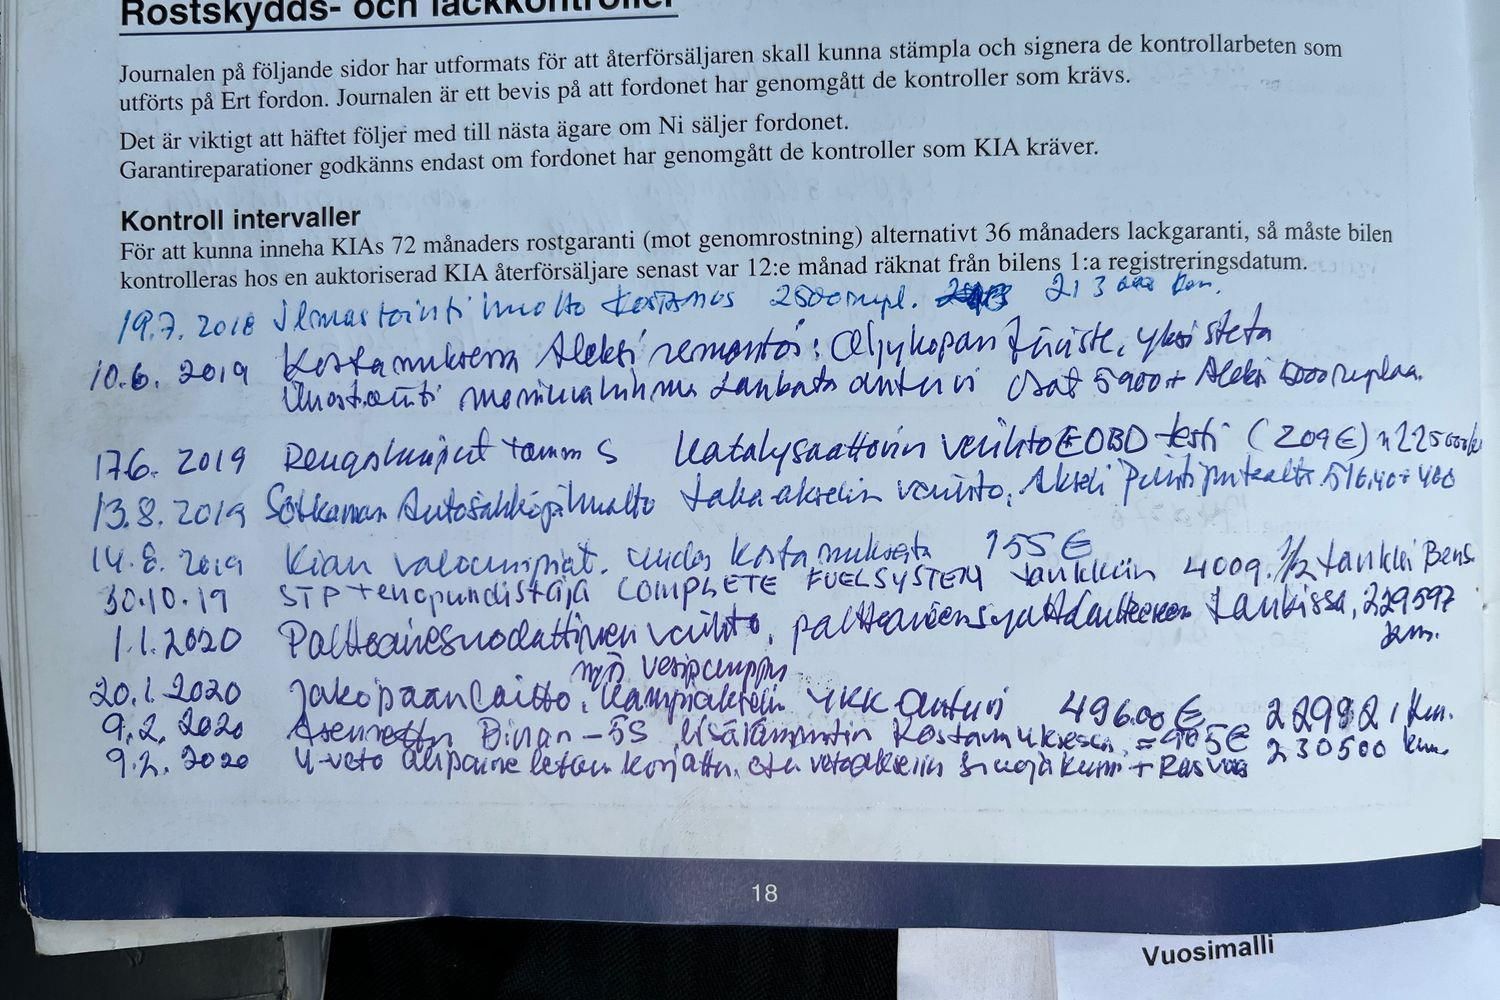 Rostskydds- och lackkontroller
Journalen på följande sidor har utformats för att återförsäljaren skall kunna stämpla och signera de kontrollarbeten som
utförts på Ert fordon. Journalen är ett bevis på att fordonet har genomgått de kontroller som krävs.
Det är viktigt att häftet följer med till nästa ägare om Ni säljer fordonet.
Garantireparationer godkänns endast om fordonet har genomgått de kontroller som KIA kräver.
Kontroll intervaller
För att kunna inneha KIAs 72 månaders rostgaranti (mot genomrostning) alternativt 36 månaders lackgaranti, så måste bilen
kontrolleras hos en auktoriserad KIA återförsäljare senast var 12:e månad räknat från bilens 1:a registreringsdatum.
19.7. 2018 Ilmastointi huolto Kostamus 2500 rupl. 213 000 km.
10.6. 2019 Kostamuksessa Aleksi remontoi: Öljykopan tiiviste, yksi
Lambda anturi osat 5900+ Aleksi 5000 ruplaa.
17.6. 2019 Rengaskuviot Katalysaattorin vaihto EOBD testi (209€)
13.8. 2019 Sotkamon Autosähköjahuolto taka-akselin vaihto. 516,40+400
14.8. 2019 Kian valoumpiot. uudet Kostamuksesta 155€
30.10.19 STP COMPLETE FUELSYSTEM tankkiin 400g. 1/2 tankki Bens.
1.1.2020 Polttoainesuodattimen vaihto, tankissa, 229597
km.
myös vesipumppu
20.1.2020 Jakopäan laitto. Kampiakselin YKK anturi 496.00€ 229921 km.
9.2. 2020 Asennettu Binar-5S lisälämmitin Kostamuksessa =905€ 230500 km.
9.2. 2020 4-veto alipaine letku korjattu, etu vetoakselin suojakumi + Rasvaa
18
Vuosimalli